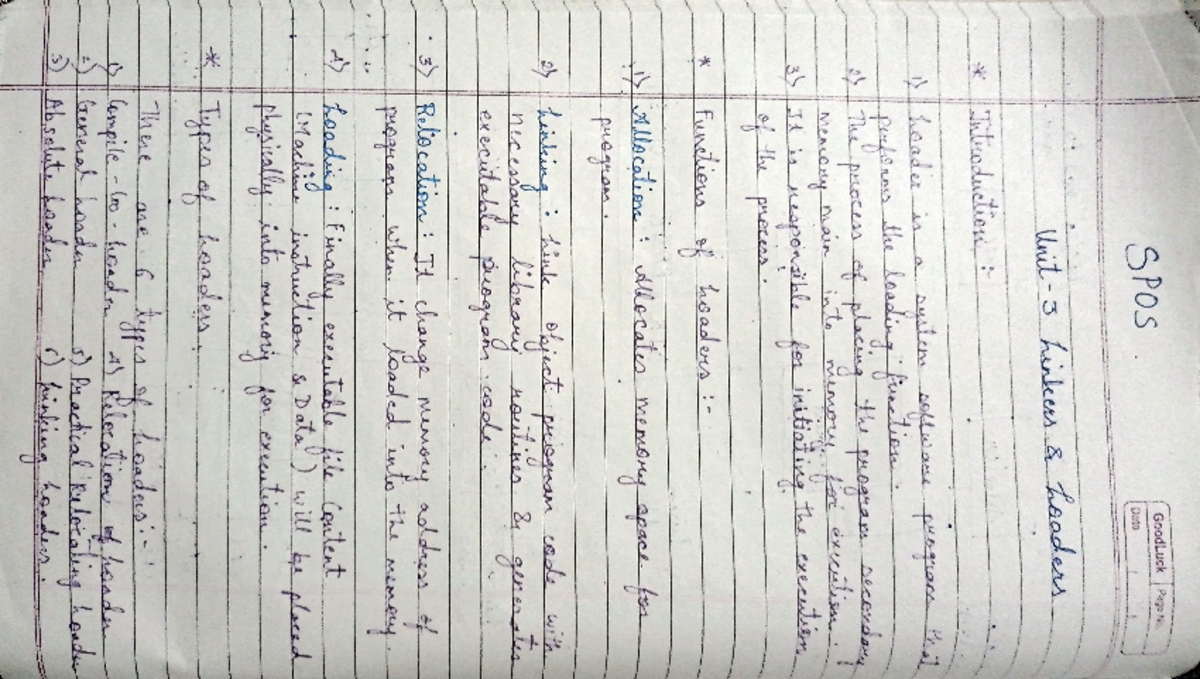 SPOS
GoodLuck Page No.
Date
Unit-3 Linkers & Loaders
* Introduction :-
1) Loader is a system software program that
performs the loading function.
2) The process of placing the program secondary
memory main into memory for execution.
3) It is responsible for initiating the execution
of the process.
* Functions of Loaders :-
1) Allocation : Allocates memory space for
program.
2) Linking : Link object program code with
necessary library routines & generates
executable program code.
3) Relocation : It change memory address of
program when it loaded into the memory.
4) Loading : Finally executable file Content
(Machine instruction & Data) will be placed
physically into memory for execution.
* Types of Loaders.
There are 6 types of Loaders:-
1) Compile-Go-Loader 4) Relocation of Loader
2) General Loader 5) Practical Relocating Loader
3) Absolute Loader 6) Linking Loaders.